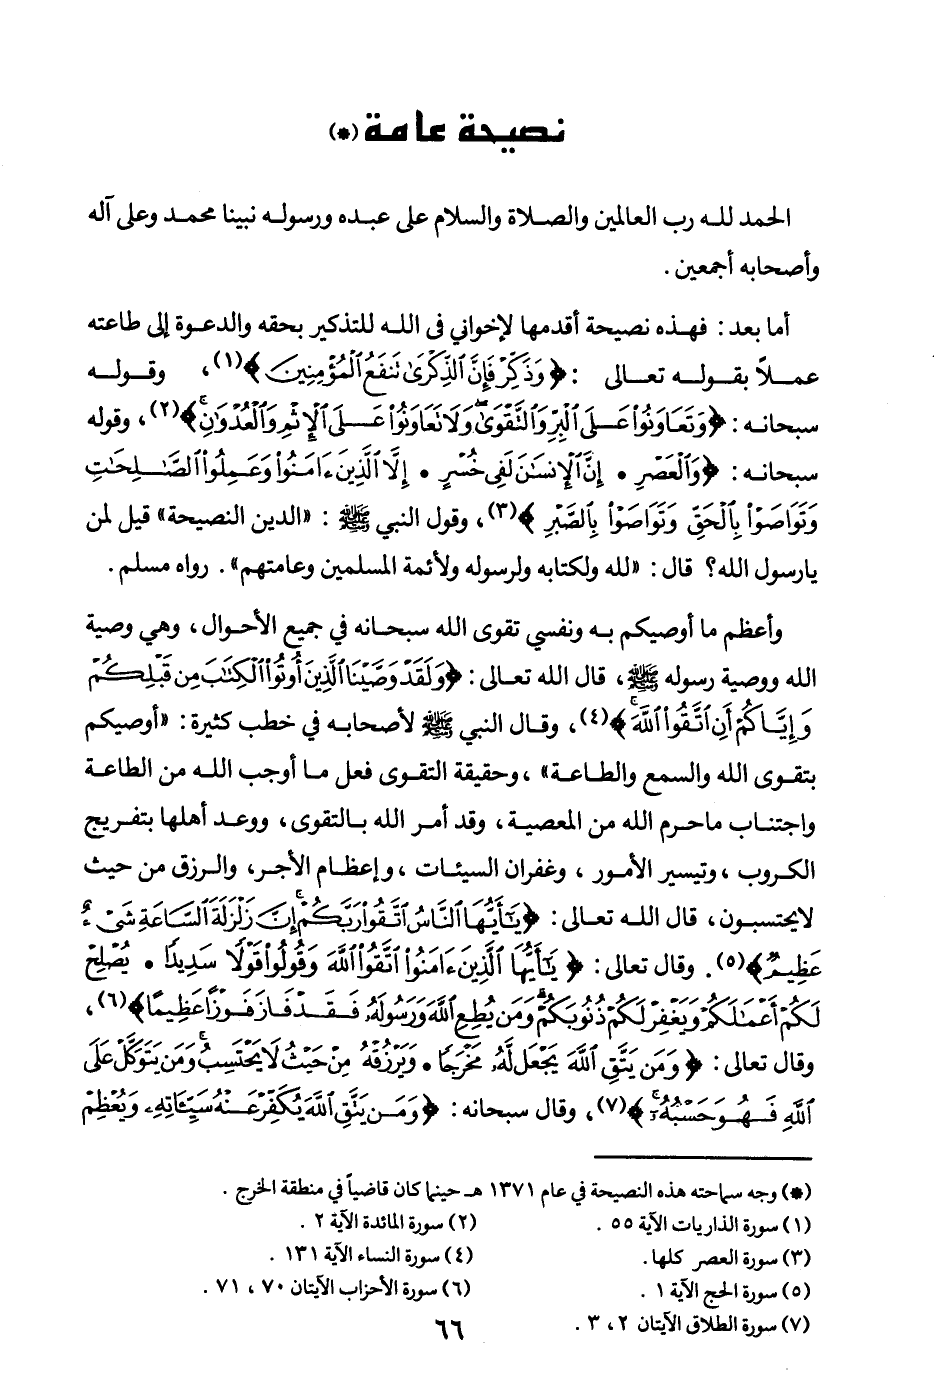 نصيحة عامة (*)
الحمد لله رب العالمين والصلاة والسلام على عبده ورسوله نبينا محمد وعلى آله
وأصحابه أجمعين .
أما بعد : فهذه نصيحة أقدمها لإخواني في الله للتذكير بحقه والدعوة إلى طاعته
عملاً بقوله تعالى : ﴿وَذَكِّرْ فَإِنَّ ٱلذِّكْرَىٰ تَنفَعُ ٱلْمُؤْمِنِينَ﴾(١) ، وقوله
سبحانه : ﴿وَتَعَاوَنُوا۟ عَلَى ٱلْبِرِّ وَٱلتَّقْوَىٰ ۖ وَلَا تَعَاوَنُوا۟ عَلَى ٱلْإِثْمِ وَٱلْعُدْوَٰنِ ۚ﴾(٢) ، وقوله
سبحانه : ﴿وَٱلْعَصْرِ • إِنَّ ٱلْإِنسَٰنَ لَفِى خُسْرٍ • إِلَّا ٱلَّذِينَ ءَامَنُوا۟ وَعَمِلُوا۟ ٱلصَّٰلِحَٰتِ
وَتَوَاصَوْا۟ بِٱلْحَقِّ وَتَوَاصَوْا۟ بِٱلصَّبْرِ﴾(٣) ، وقول النبي ﷺ : «الدين النصيحة» قيل لمن
يارسول الله؟ قال : «لله ولكتابه ولرسوله ولأئمة المسلمين وعامتهم» . رواه مسلم .
وأعظم ما أوصيكم به ونفسي تقوى الله سبحانه في جميع الأحوال ، وهي وصية
الله ووصية رسوله ﷺ ، قال الله تعالى : ﴿وَلَقَدْ وَصَّيْنَا ٱلَّذِينَ أُوتُوا۟ ٱلْكِتَٰبَ مِن قَبْلِكُمْ
وَإِيَّاكُمْ أَنِ ٱتَّقُوا۟ ٱللَّهَ ۚ﴾(٤) ، وقال النبي ﷺ لأصحابه في خطب كثيرة : «أوصيكم
بتقوى الله والسمع والطاعة» ، وحقيقة التقوى فعل ما أوجب الله من الطاعة
واجتناب ماحرم الله من المعصية ، وقد أمر الله بالتقوى ، ووعد أهلها بتفريج
الكروب ، وتيسير الأمور ، وغفران السيئات ، وإعظام الأجر ، والرزق من حيث
لايحتسبون ، قال الله تعالى : ﴿يَٰٓأَيُّهَا ٱلنَّاسُ ٱتَّقُوا۟ رَبَّكُمْ ۚ إِنَّ زَلْزَلَةَ ٱلسَّاعَةِ شَىْءٌ
عَظِيمٌ﴾(٥) . وقال تعالى : ﴿يَٰٓأَيُّهَا ٱلَّذِينَ ءَامَنُوا۟ ٱتَّقُوا۟ ٱللَّهَ وَقُولُوا۟ قَوْلًا سَدِيدًا • يُصْلِحْ
لَكُمْ أَعْمَٰلَكُمْ وَيَغْفِرْ لَكُمْ ذُنُوبَكُمْ ۗ وَمَن يُطِعِ ٱللَّهَ وَرَسُولَهُۥ فَقَدْ فَازَ فَوْزًا عَظِيمًا﴾(٦) ،
وقال تعالى : ﴿وَمَن يَتَّقِ ٱللَّهَ يَجْعَل لَّهُۥ مَخْرَجًا • وَيَرْزُقْهُ مِنْ حَيْثُ لَا يَحْتَسِبُ ۚ وَمَن يَتَوَكَّلْ عَلَى
ٱللَّهِ فَهُوَ حَسْبُهُۥٓ ۚ﴾(٧) ، وقال سبحانه : ﴿وَمَن يَتَّقِ ٱللَّهَ يُكَفِّرْ عَنْهُ سَيِّـَٔاتِهِۦ وَيُعْظِمْ
(*) وجه سماحته هذه النصيحة في عام ١٣٧١ هـ حينما كان قاضياً في منطقة الخرج .
(١) سورة الذاريات الآية ٥٥ . (٢) سورة المائدة الآية ٢ .
(٣) سورة العصر كلها . (٤) سورة النساء الآية ١٣١ .
(٥) سورة الحج الآية ١ . (٦) سورة الأحزاب الآيتان ٧٠ ، ٧١ .
(٧) سورة الطلاق الآيتان ٢ ، ٣ .
٦٦